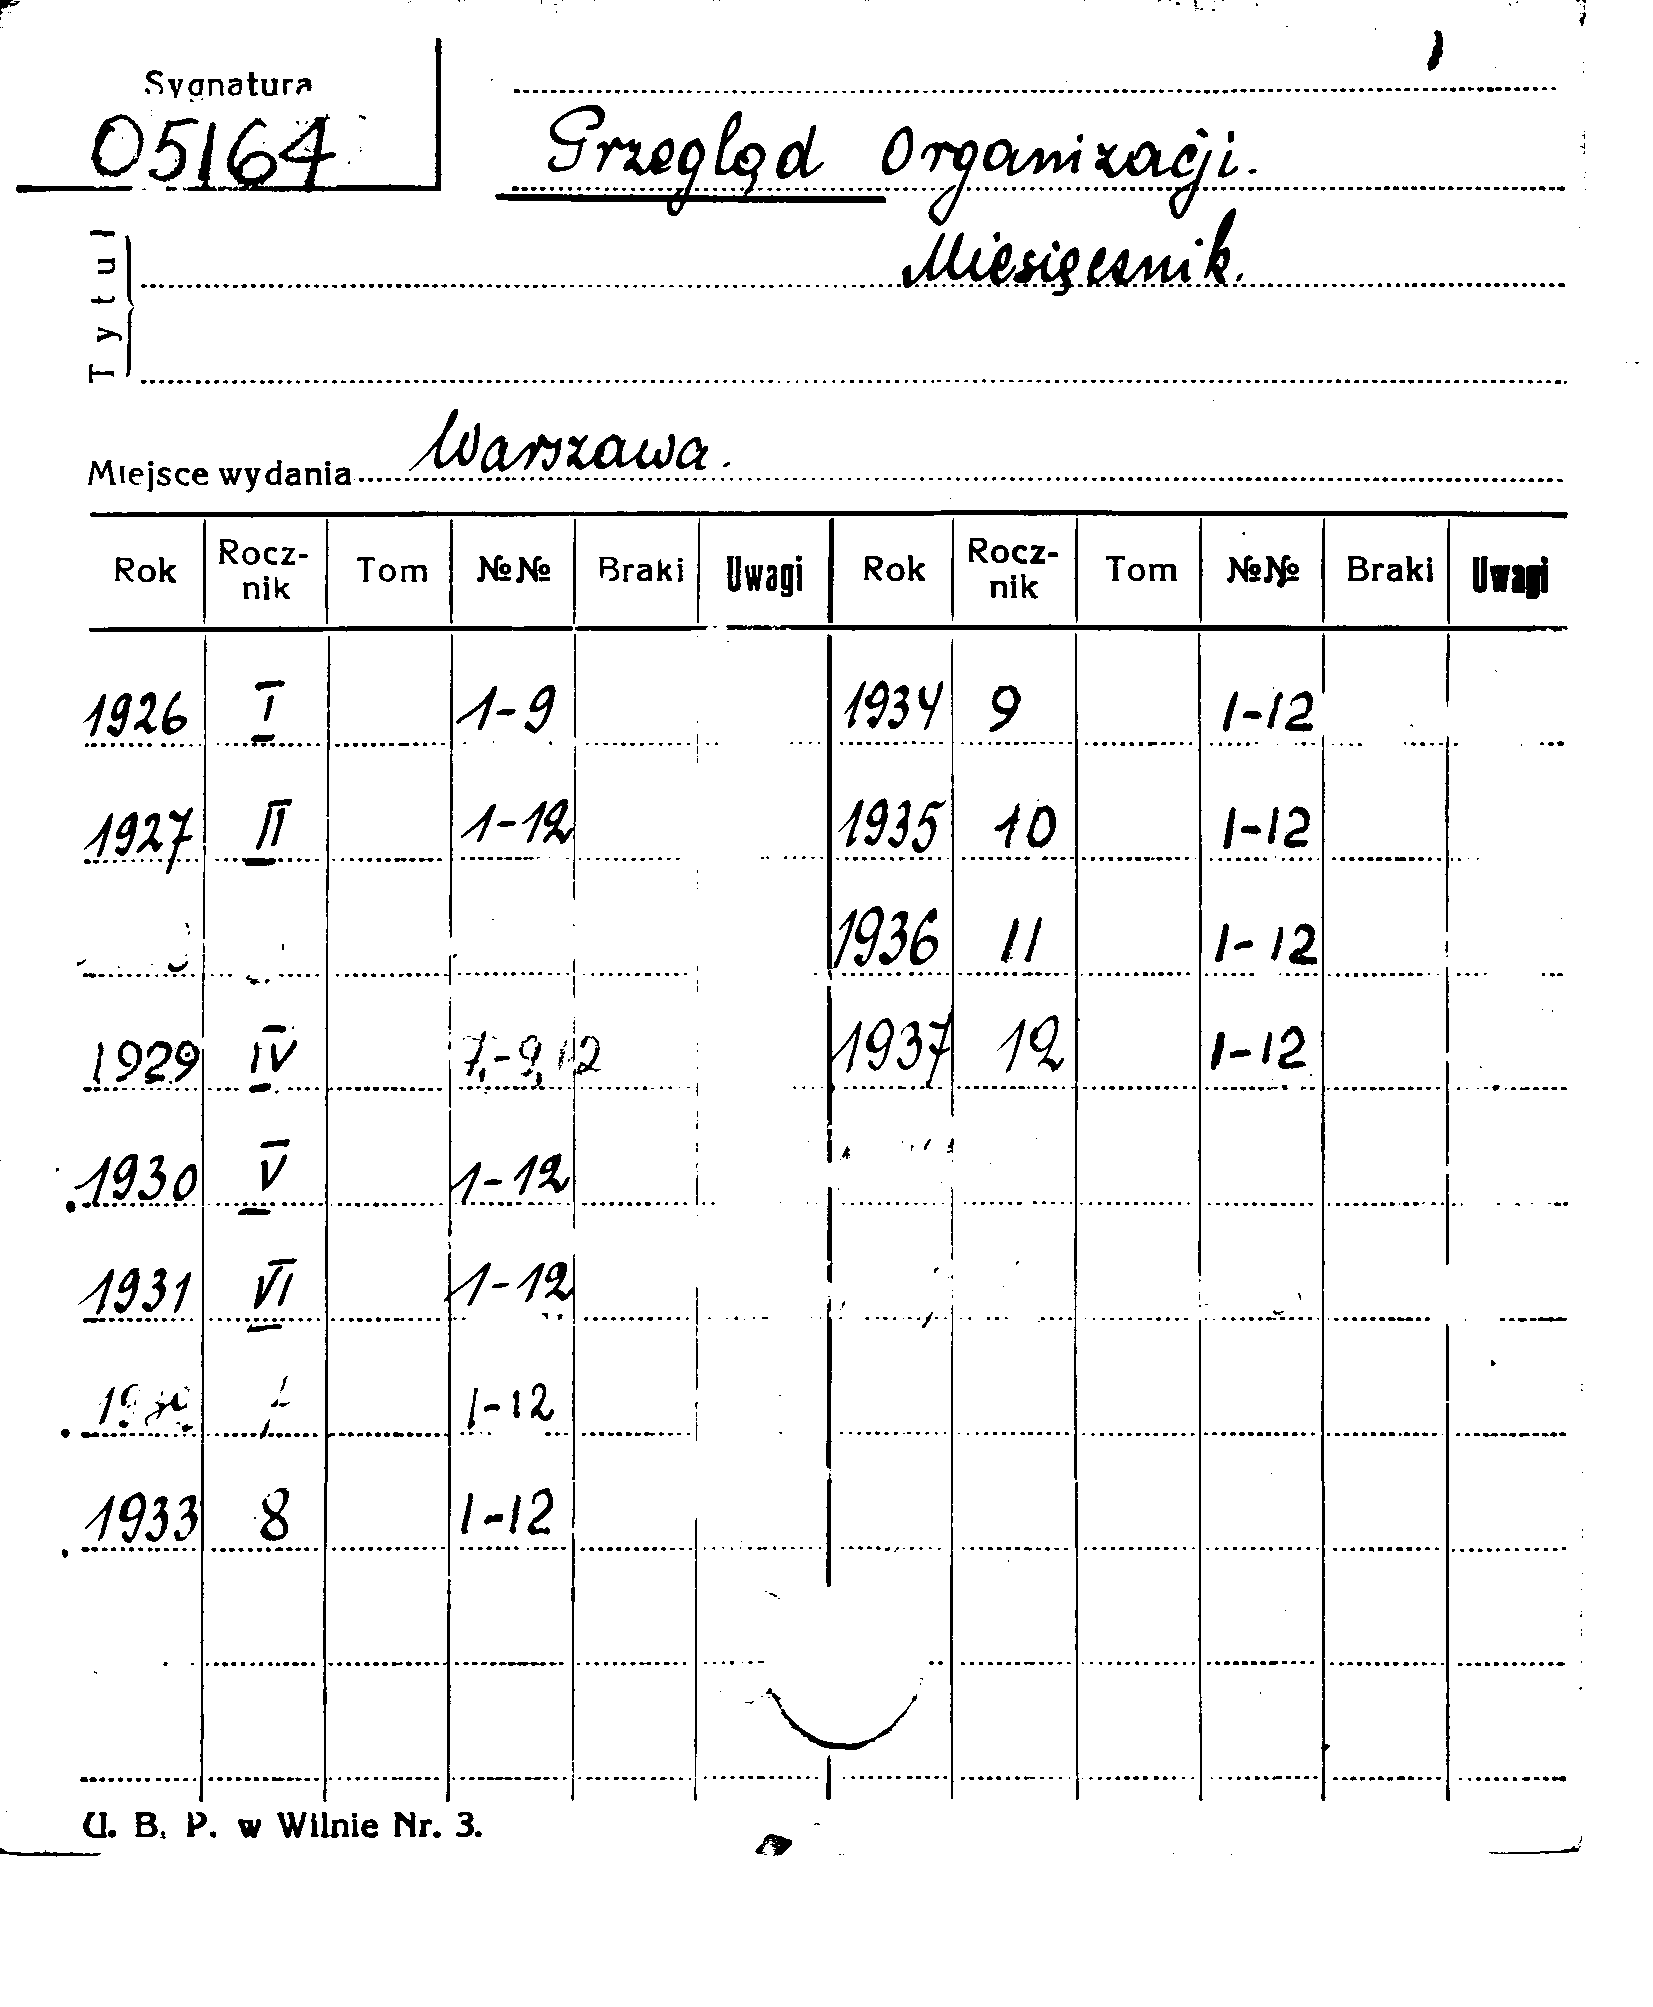 Sygnatura
05164
Przegląd Organizacji.
Miesięcznik.
Tytuł
Miejsce wydania Warszawa.
Rok Rocz-nik Tom №№ Braki Uwagi Rok Rocz-nik Tom №№ Braki Uwagi
1926 I 1-9 1934 9 1-12
1927 II 1-12 1935 10 1-12
1936 11 1-12
1929 IV 7,-9,12 1937 12 1-12
1930 V 1-12
1931 VI 1-12
1-12
1933 8 1-12
U. B. P. w Wilnie Nr. 3.